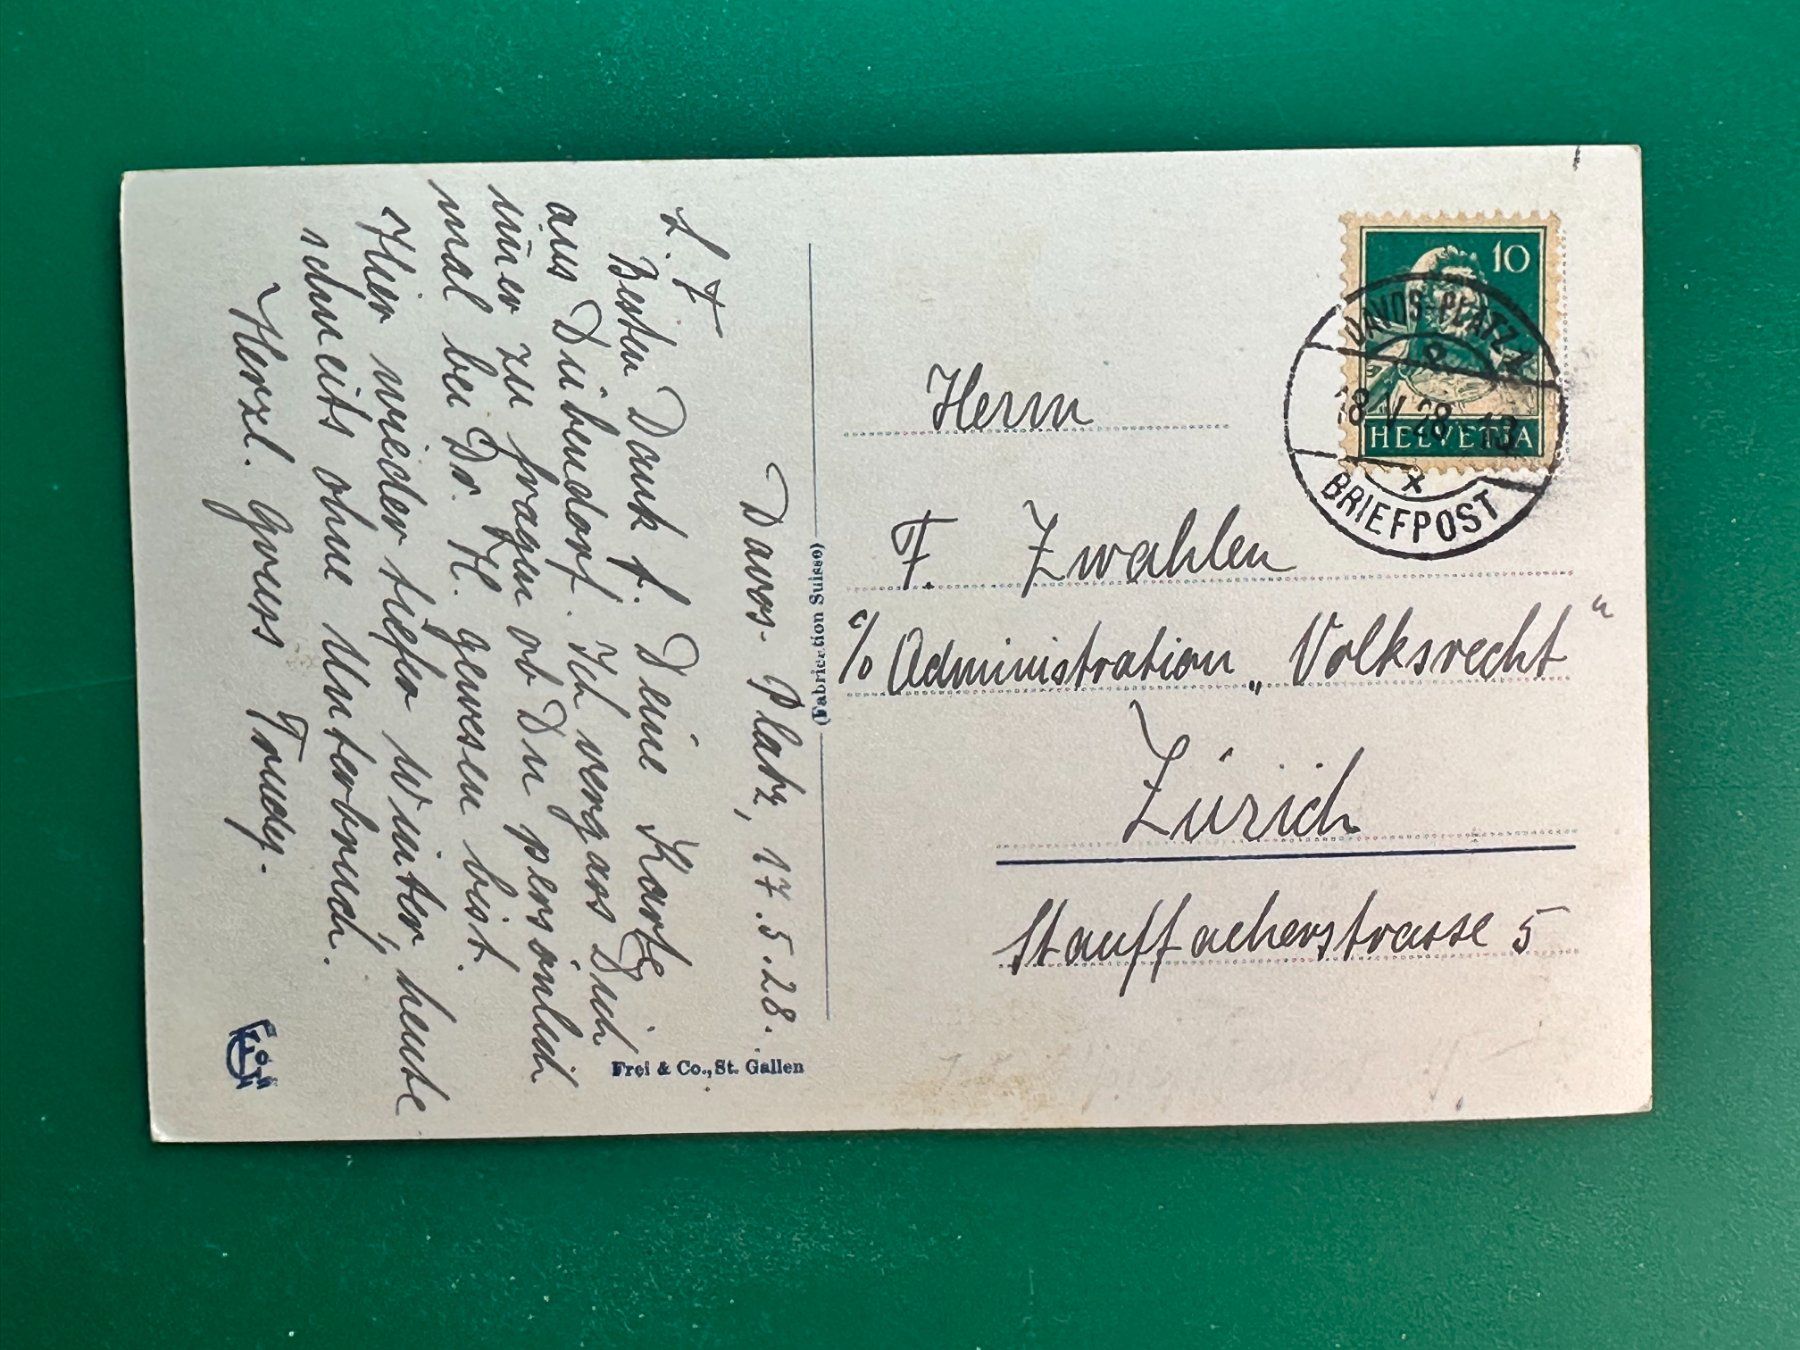 Davos-Platz, 17.5.28.
L. F
Besten Dank f. Deine Karte
aus Dübendorf. Ich vergass Dich
im̅er zu fragen ob Du persönlich
mal bei Dr. H. gewesen bist.
Hier wieder tiefer Winter, heute
schneits ohne Unterbruch.
Herzl. Gruss Trudy.
(Fabrication Suisse)
Frei & Co., St. Gallen
10
HELVETIA
DAVOS-PLATZ 1
18.V.28.-13
BRIEFPOST
Herrn
F. Zwahlen
c/o Administration „Volksrecht“
Zürich
Stauffacherstrasse 5